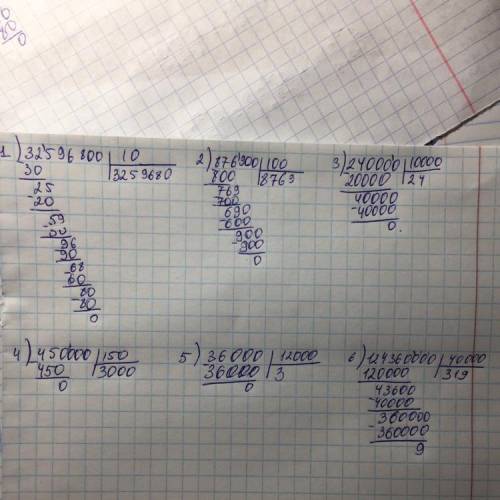 1) 32596800 | 10
30 | 3259680
25
-20
59
50
96
90
68
60
80
-80
0
2) 876300 | 100
800 | 8763
763
700
630
600
300
300
0
3) 240000 | 10000
20000 | 24
40000
-40000
0.
4) 450000 | 150
450 | 3000
0
5) 36000 | 12000
36000 | 3
0
6) 124360000 | 40000
120000 | 319
43600
-40000
360000
-360000
9